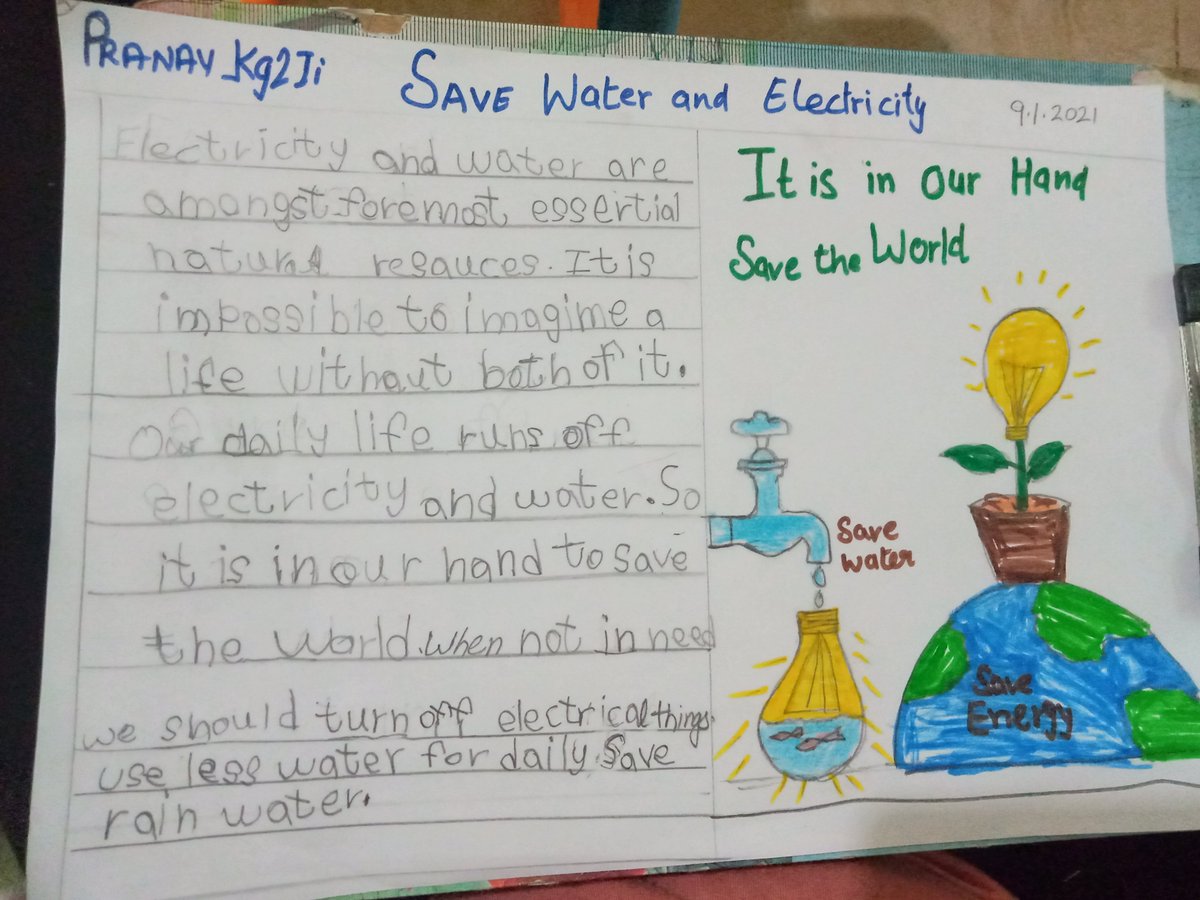 PRANAV Kg2Ji
SAVE Water and Electricity
9.1.2021
Electricity and water are
amongst foremost essertial
natural resauces. It is
impossible to imagime a
life withaut both of it.
Our daily life runs off
electricity and water. So
it is in our hand to save
the world. when not in need
we should turn off electrical things.
use less water for daily. Save
rain water.
It is in Our Hand
Save the World
Save
water
Save
Energy